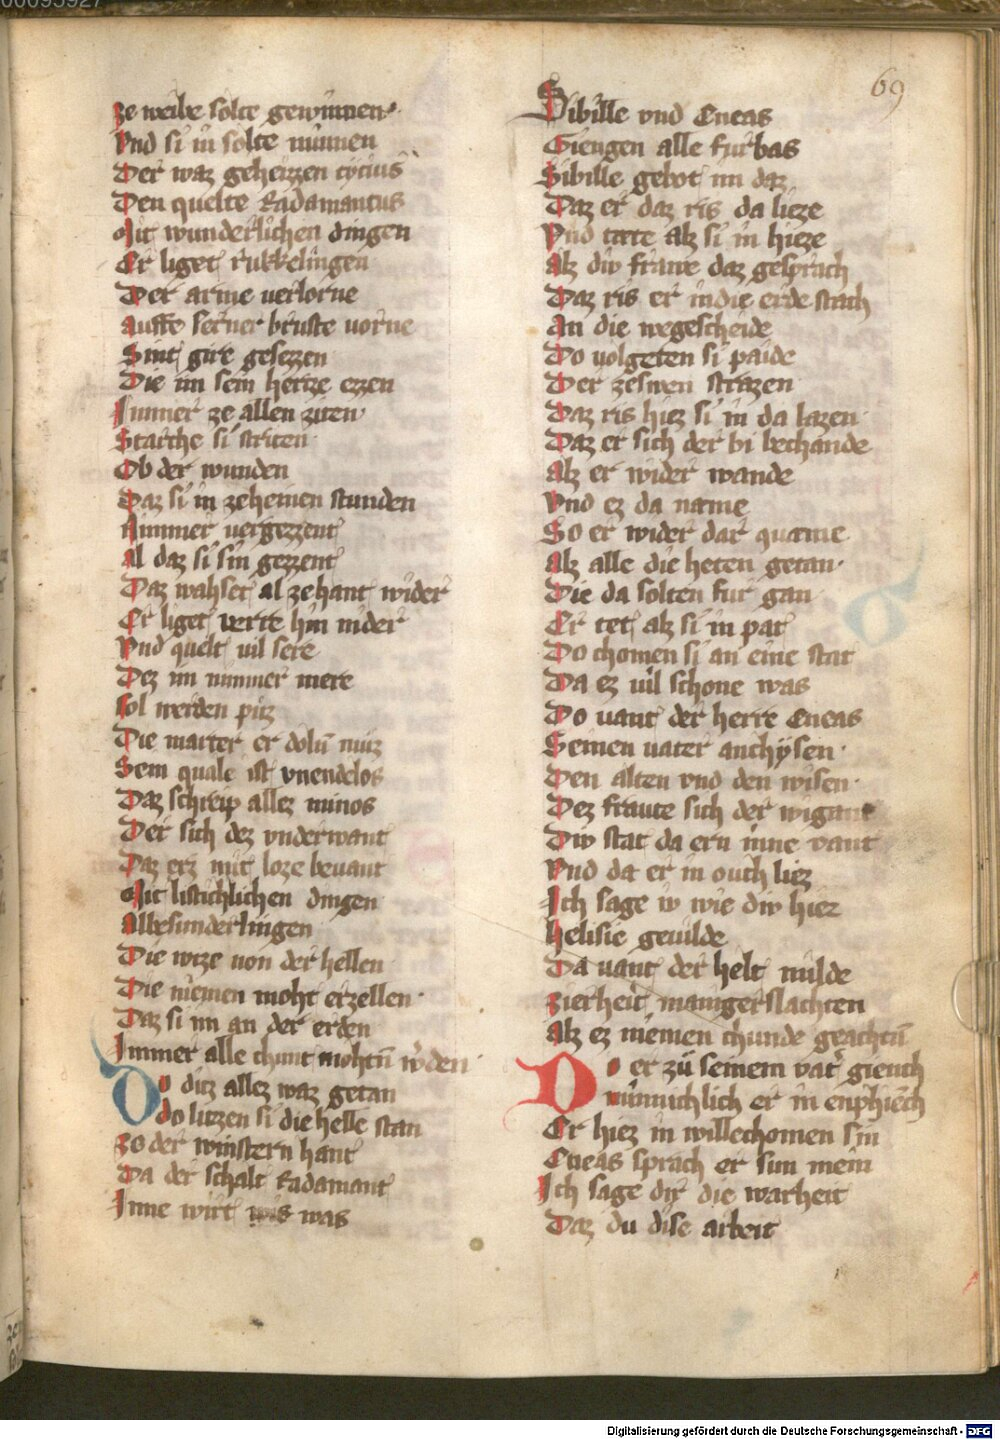 69
ze weibe solte gewinnen
Vnd si in solte minnen
Der waz geheizzen tycius
Den quelte Radamantus
Mit wunderlichen dingen
Er liget rukkelingen
Der arme verlorne
Auffe seiner bruste vorne
Sint gire gesezzen
Die im sein hertze ezzen
Immer ze allen ziten
Starche si striten
Ob der wunden
Daz si in zeheinen stunden
Nimmer vergezzent
Al daz si sin gezzent
Daz wahset al zehant wider
Er liget verre hin nider
Vnd quelt vil sere
Dez im nimmer mere
sol werden piz
Die marter er doln muz
Sein quale ist vnendelos
Daz schreip allez minos
Der sich dez vnderwant
Daz erz mit loze bevant
Mit listichlichen dingen
Albesunderlingen
Die wize von der hellen
Die niemen moht erzellen
Daz si im an der erden
Immer alle chunt mohtn̄ w̓den
Do ditz allez waz getan
do liezzen si die helle stan
zo der winstern hant
Da der schalt Radamant
Inne wirt was
Sibille vnd Eneas
Giengen alle furbas
Sibille gebot im daz
Daz er daz ris da lieze
Vnd tæte alz si in hieze
Alz div frawe daz gesprach
Daz ris er in die erde stach
An die wegescheide
Do volgeten si paide
Der zeswen strazen
Daz ris hiez si in da lazen
Daz er sich der bi bechande
Alz er wider wande
Vnd ez da næme
So er wider dar quæme
Alz alle die heten getan
Die da solten fur gan
Er tet alz si in pat
Do chomen si an eine stat
Da ez vil schone was
Do vant der herre Eneas
Seinen vater anchÿsen
Den alten vnd den wisen
Dez fraute sich der wigant
Div stat da ern inne vant
Vnd da er in ouch liez
Ich sage iv wie div hiez
helisie gevilde
Da vant der helt milde
zierheit manigerslachten
Alz ez niemen chunde geachtn̄
Do er zů seinem vat̓ giench
minnichlich er in enphiēch
Er hiez in willechomen sin
Eneas sprach er sun mein
Ich sage dir die warheit
Daz du dise arbeit
Digitalisierung gefördert durch die Deutsche Forschungsgemeinschaft - DFG